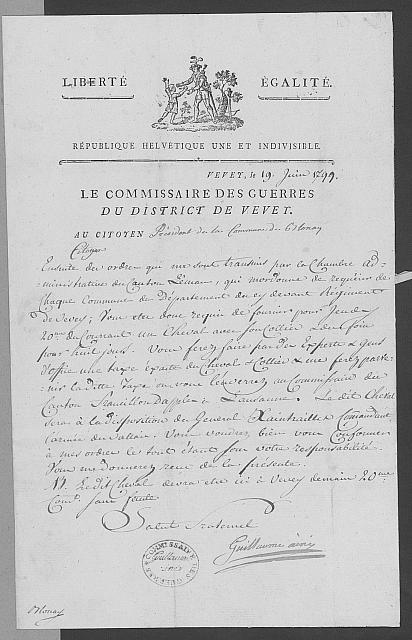 LIBERTÉ ÉGALITÉ.
RÉPUBLIQUE HELVÉTIQUE UNE ET INDIVISIBLE.
VEVEY, le 19. Juin 1799.
LE COMMISSAIRE DES GUERRES
DU DISTRICT DE VEVEY.
AU CITOYEN Président de la Commune de Blonay
Citoyen
Ensuite des ordres qui me sont transmis par la Chambre Ad=
=ministrative du Canton Léman, qui m'ordonne de requérir de
Chaque Commune du Département du cy devant Régiment
de Vevey; Vous etes donc requis de fournir pour Jeudy
20me du Courant un Cheval avec son Collier
pour huit jours. Vous ferez faire par des Experts & Gens
d'office une taxe exacte du Cheval & Collier & me ferez parve=
nir la ditte Taxe ou vous l'enverrez au Commissaire du
Canton à Lausanne. Le dit Cheval
sera à la disposition du General Xaintrailles Comandant
l'armée du Valais. Vous voudrez bien vous Conformer
à mes ordres le tout étant sous votre responsabilité.
Vous me donnerez de la présente.
Le dit Cheval devra etre ici à Vevey demain 20me
Cour. sans faute
Salut Fraternel
Guillaume
COMMISSAIRE DES GUERRES
Guillaume
Blonay